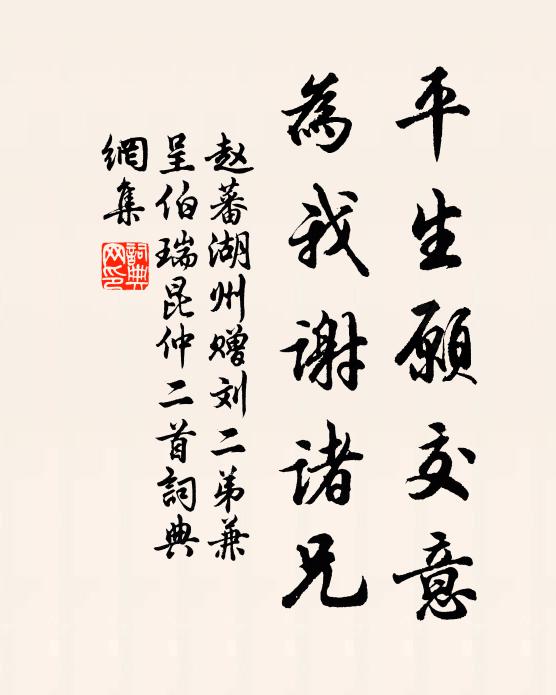 平生願交意
為我谢诸兄
赵蕃湖州赠刘二弟兼
呈伯瑞昆仲二首詞典
網集
詞典网印